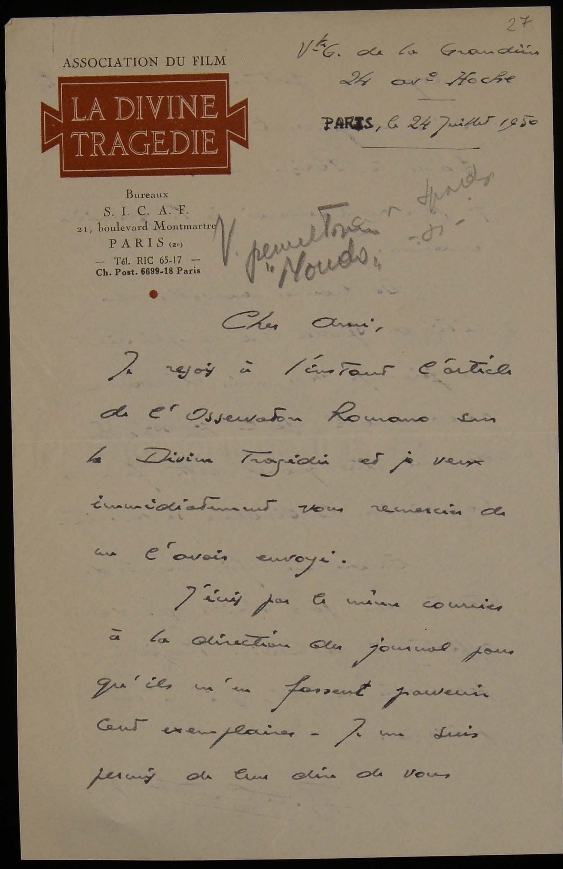 27
ASSOCIATION DU FILM
LA DIVINE
TRAGEDIE
Bureaux
S. I. C. A. F.
21, boulevard Montmartre
PARIS (2e)
— Tél. RIC 65-17 —
Ch. Post. 6699-18 Paris
Vte G. de la Grandière
24 ave Hoche
PARIS, le 24 Juillet 1950
Cher Ami,
Je reçois à l'instant l'article
de l'Osservatore Romano sur
la Divine Tragédie et je veux
immédiatement vous remercier de
me l'avoir envoyé.
J'écris par le même courrier
à la direction du journal pour
qu'ils m'en fassent parvenir
cent exemplaires - Je me suis
permis de leur dire de vous